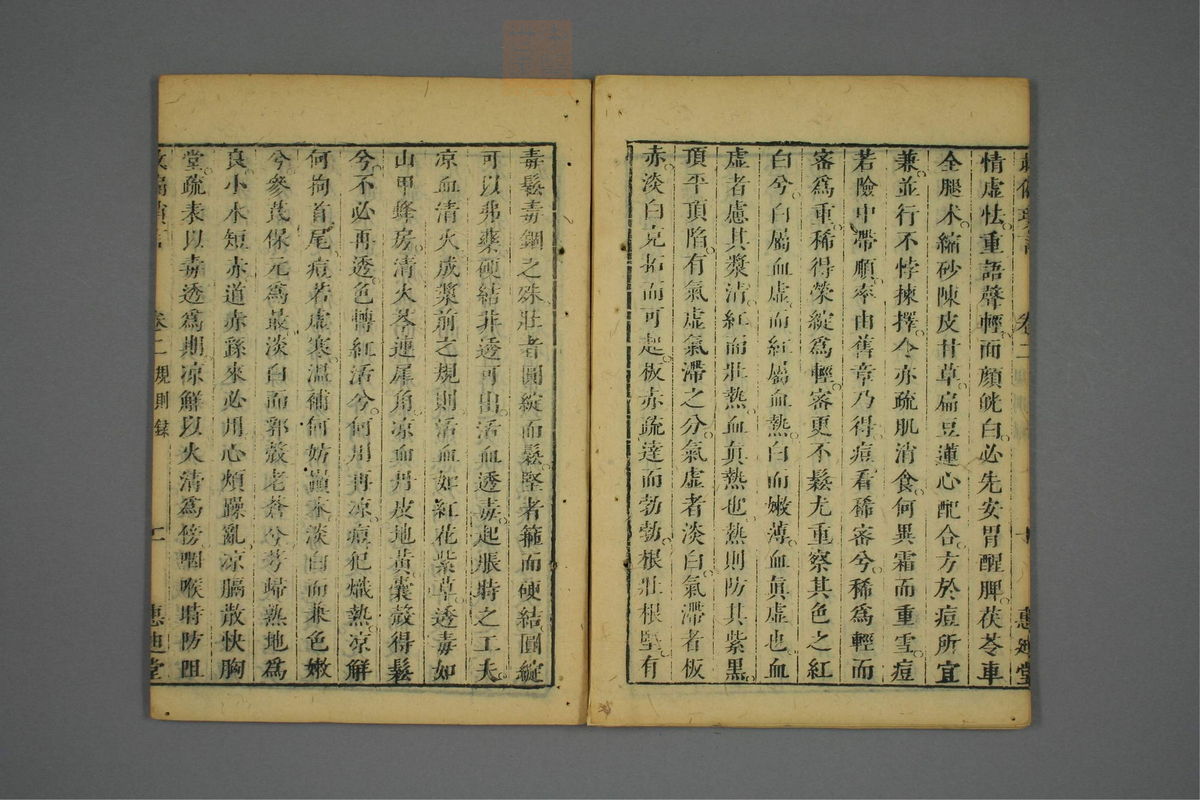 情虛怯重語聲輕而顏㿠白必先安胃醒脾茯苓車
全腿术縮砂陳皮甘草扁豆蓮心配合方於痘所宜
兼並行不悖揀擇今亦疏肌消食何異霜而重雪痘
若險中帶順率由舊章乃得痘看稀審兮稀爲輕而
審爲重稀得榮綻爲輕審更不鬆尤重察其色之紅
白兮白屬血虛而紅屬血熱白而嫩薄血眞虛也血
虛者慮其漿清紅而壯熱血眞熱也熱則防其紫黑
頂平頂陷有氣虛氣滯之分氣虛者淡白氣滯者板
赤淡白克拓而可起板赤疏達而勃勃根壯根堅有
毒鬆毒錮之殊壯者圓綻而鬆堅者箍而硬結圓綻
可以弗藥硬結非透可出活血透毒起脹時之工夫
凉血清火成漿前之規則活血如紅花紫草透毒如
山甲蜂房清火芩連犀角凉血丹皮地黃囊殼得鬆
兮不必再透色轉紅活兮何用再凉痘犯熾熱凉解
何拘首尾痘若虛寒溫補何妨顆本淡白而兼色嫩
兮參芪保元爲最淡白而郭殼老蒼兮芎歸熟地爲
良小水短赤道赤孫來必用心煩躁亂凉膈散快胸
堂疏表以毒透爲期凉解以火清爲傍咽喉時防阻
卷二 規則錄
惠迪堂